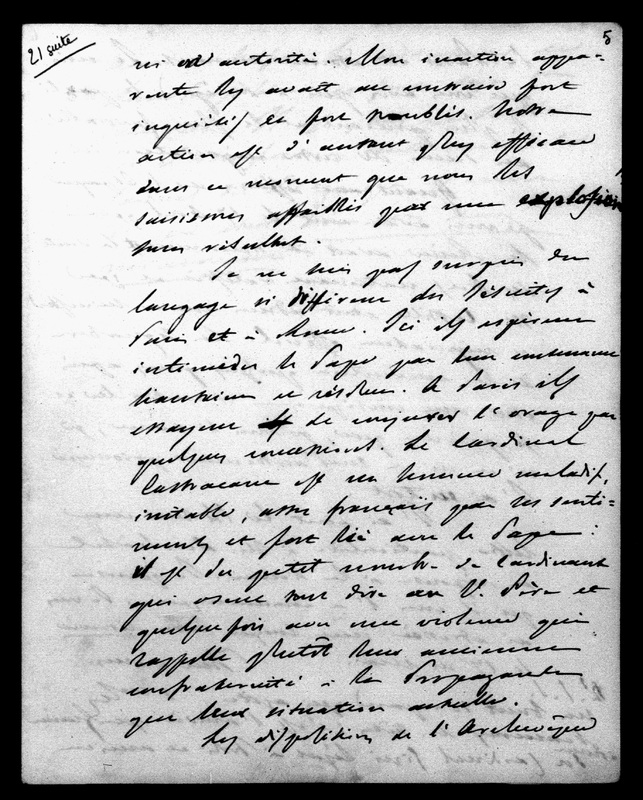 21 suite
5
ni od autorité. Mon inaction appa=
rente les avait au contraire fort
inquiétés et fort troublés. Notre
action est d'autant plus efficace
dans ce moment que nous les
saisissons affaiblis par une explosion
sans résultat.
Je ne suis pas surpris du
langage si différent des Jésuites à
Paris et à Rome. Ici ils espèrent
intimider le Pape par leur contenance
hautaine et résolue. A Paris ils
essayent de conjurer l'orage par
quelques concessions. Le Cardinal
Castracane est un homme maladif,
irritable, assez français par ses senti=
ments et fort lié avec le Pape :
il est du petit nombre de Cardinaux
qui osent tout dire au S. Père et
quelque fois avec une violence qui
rappelle plutôt leur ancienne
confraternité à la Propagande
que leur situation actuelle.
Les dispositions de l'Archevêque